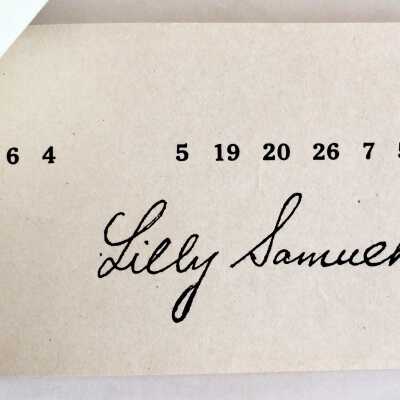 6 4 5 19 20 26 7
Lilly Samuel